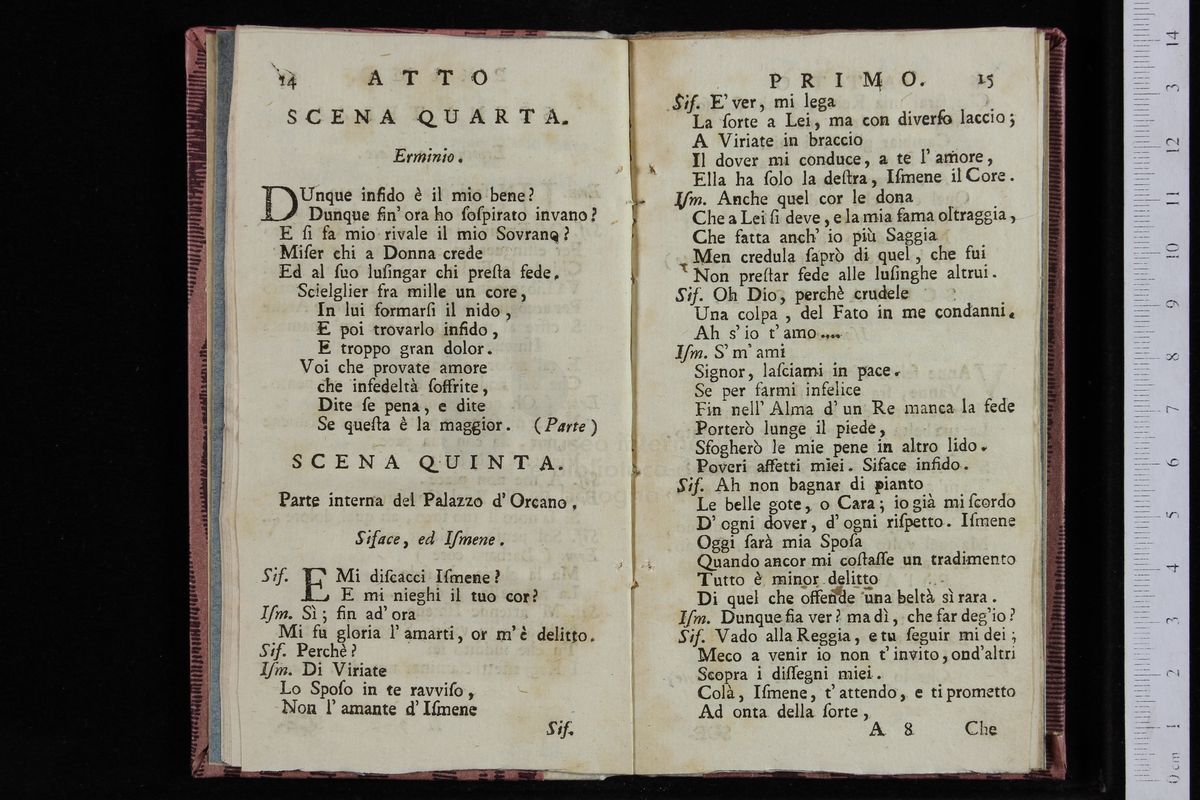 14 ATTO
SCENA QUARTA.
Erminio.
DUnque infido è il mio bene?
Dunque fin' ora ho ſoſpirato invano?
E ſi fa mio rivale il mio Sovrano?
Miſer chi a Donna crede
Ed al ſuo luſingar chi preſta fede.
Scielglier fra mille un core,
In lui formarſi il nido,
E poi trovarlo infido,
E troppo gran dolor.
Voi che provate amore
che infedeltà ſoffrite,
Dite ſe pena, e dite
Se queſta è la maggior. (Parte)
SCENA QUINTA.
Parte interna del Palazzo d'Orcano.
Siface, ed Iſmene.
Sif. E Mi diſcacci Iſmene?
E mi nieghi il tuo cor?
Iſm. Sì; fin ad' ora
Mi fu gloria l' amarti, or m'è delitto.
Sif. Perchè?
Iſm. Di Viriate
Lo Spoſo in te ravviſo,
Non l' amante d' Iſmene
Sif.
PRIMO. 15
Sif. E' ver, mi lega
La ſorte a Lei, ma con diverſo laccio;
A Viriate in braccio
Il dover mi conduce, a te l' amore,
Ella ha ſolo la deſtra, Iſmene il Core.
Iſm. Anche quel cor le dona
Che a Lei ſi deve, e la mia fama oltraggia,
Che fatta anch' io più Saggia
Men credula ſaprò di quel, che fui
Non preſtar fede alle luſinghe altrui.
Sif. Oh Dio, perchè crudele
Una colpa, del Fato in me condanni.
Ah s' io t' amo....
Iſm. S' m' ami
Signor, laſciami in pace.
Se per farmi infelice
Fin nell' Alma d' un Re manca la fede
Porterò lunge il piede,
Sfogherò le mie pene in altro lido.
Poveri affetti miei. Siface infido.
Sif. Ah non bagnar di pianto
Le belle gote, o Cara; io già mi ſcordo
D' ogni dover, d' ogni riſpetto. Iſmene
Oggi ſarà mia Spoſa
Quando ancor mi coſtaſſe un tradimento
Tutto è minor delitto
Di quel che offende una beltà sì rara.
Iſm. Dunque fia ver? ma dì, che far deg'io?
Sif. Vado alla Reggia, e tu ſeguir mi dei;
Meco a venir io non t' invito, ond'altri
Scopra i diſſegni miei.
Colà, Iſmene, t' attendo, e ti prometto
Ad onta della ſorte,
A 8 Che